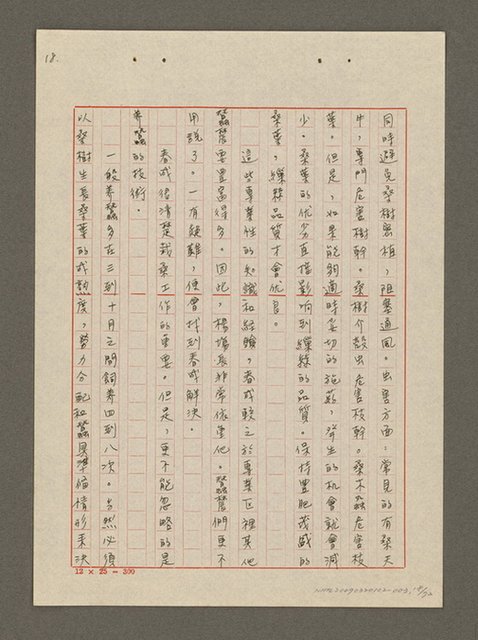 18.
同時避免桑樹密植，阻塞通風。虫害方面：常見的有桑天
牛，專門危害樹幹。桑樹介殼虫危害枝幹。桑木蝨危害枝
葉。但是，如果能夠適時妥切的施葯，發生的機會就會減
少。桑葉的优劣直接影响到繅絲的品質。保持豐肥茂盛的
桑葉，繅絲品質才會优良。
這些專業性的知識和經驗，春成較之於專業區裡其他
蠶農要豐富得多。因此，楊場長非常依重他。蠶農們更不
用說了。一有疑難，便會找到春成解決。
春成很清楚栽桑工作的重要。但是，更不能忽略的是
养蠶的技術。
一般养蠶多在三到十月之間飼养四到八次。当然必須
以桑樹生長桑葉的成熟度，勞力分配和蠶具準備情形来決
12 × 25 = 300